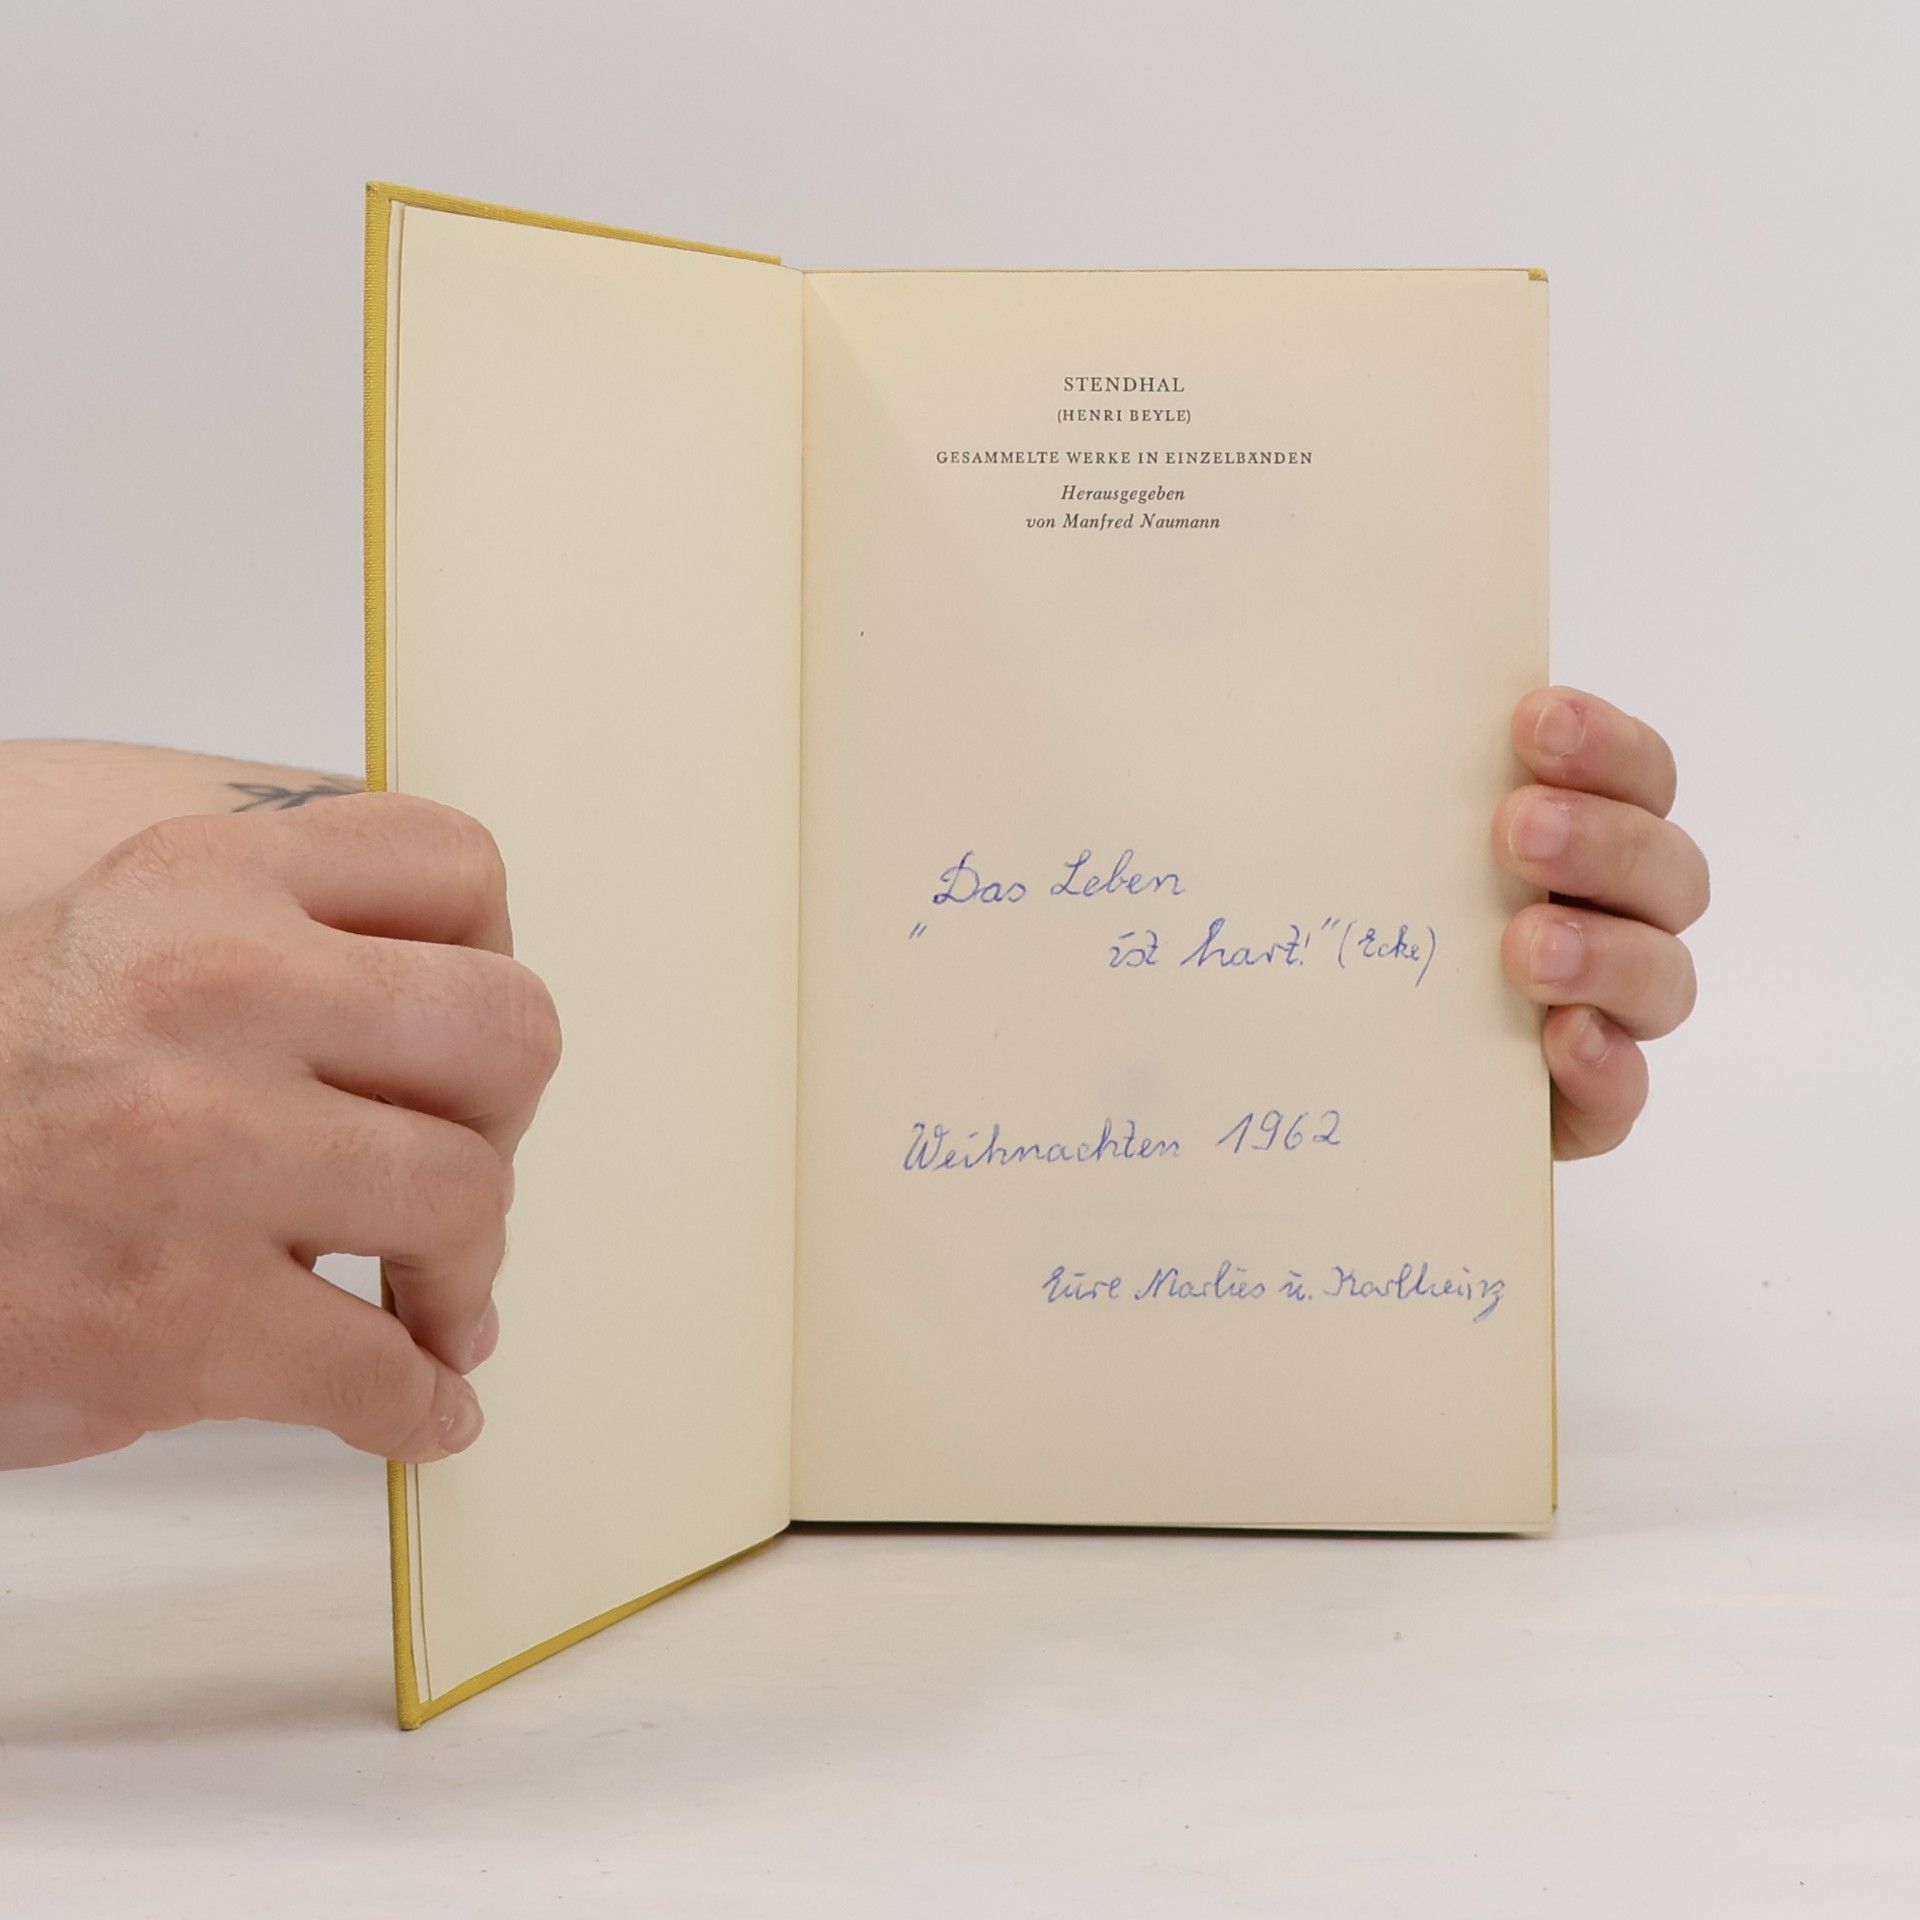 STENDHAL
(HENRI BEYLE)
GESAMMELTE WERKE IN EINZELBÄNDEN
Herausgegeben
von Manfred Naumann
„Das Leben
ist hart!“ (Ecke)
Weihnachten 1962
Eure Marlies u. Karlheinz